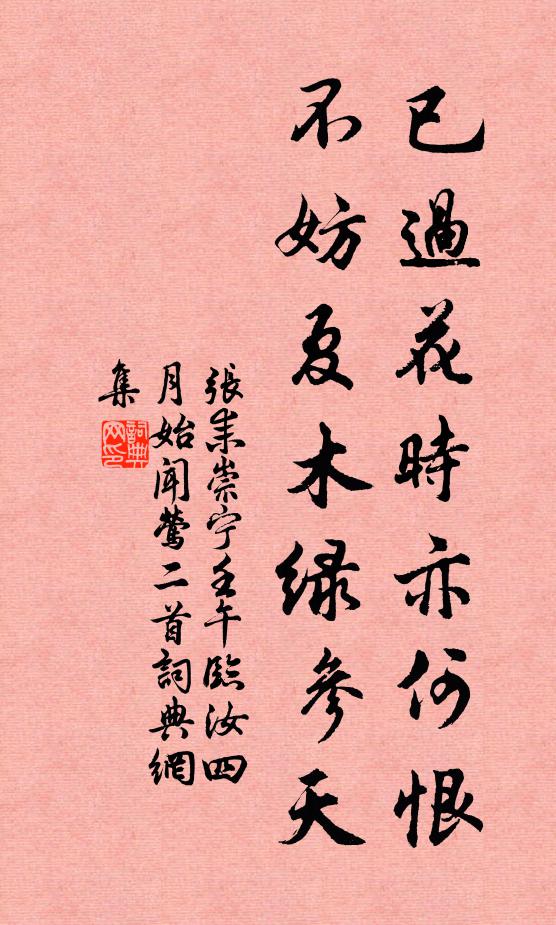 已過花時亦何恨
不妨夏木緑參天
張耒崇宁壬午臨汝四
月始闻鶯二首詞典網
集
詞典網印